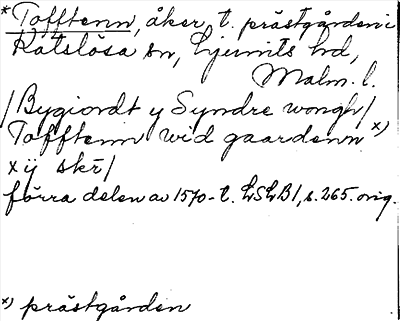 *Tofftenn, åker, t. prästgården i
Katslösa sn, Ljunits hd,
Malm. l.
/Bygiordt y Syndre wongh/
Tofftenn wid gaardenn x)
x ÿ skr/
förra delen av 1570-t. LSLB1, s. 265. orig.
x) prästgården